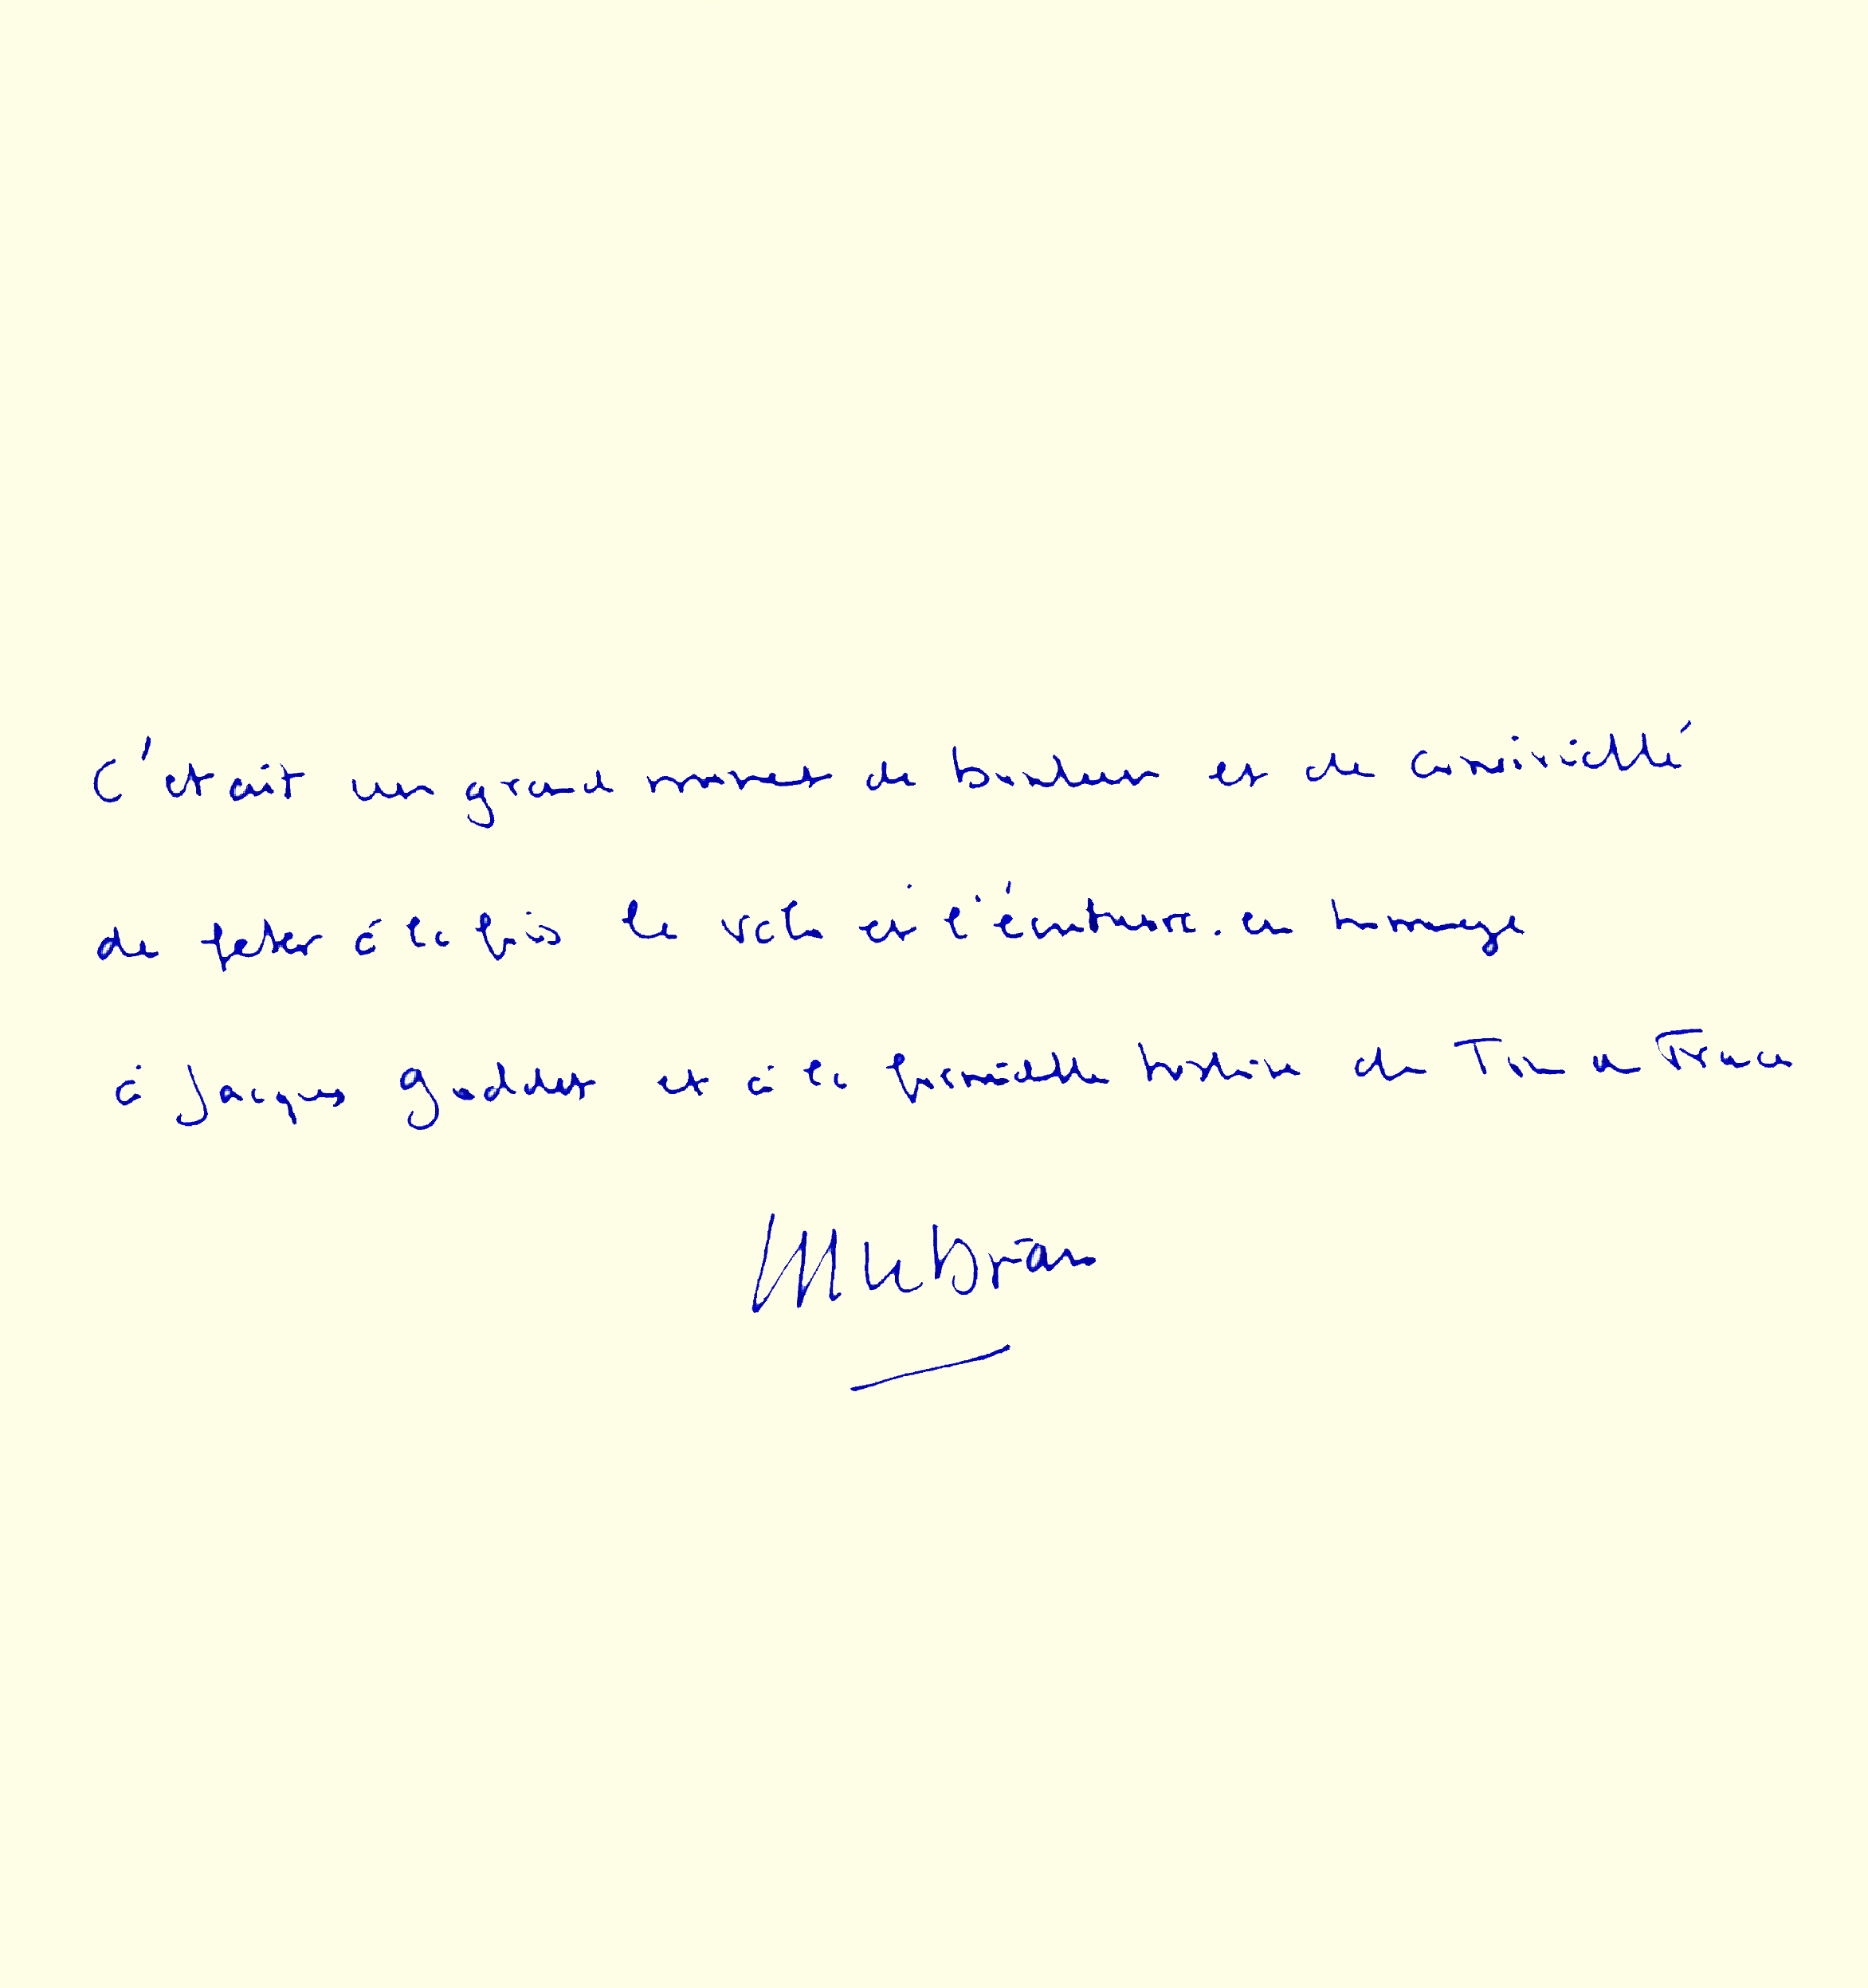 C'etait un grand moment de bonheur et de convivialité
de feter à la fois le velo et l'écriture. en hommage
à Jacques Goddet et à la formidable histoire du Tour de France
JM Le Drian